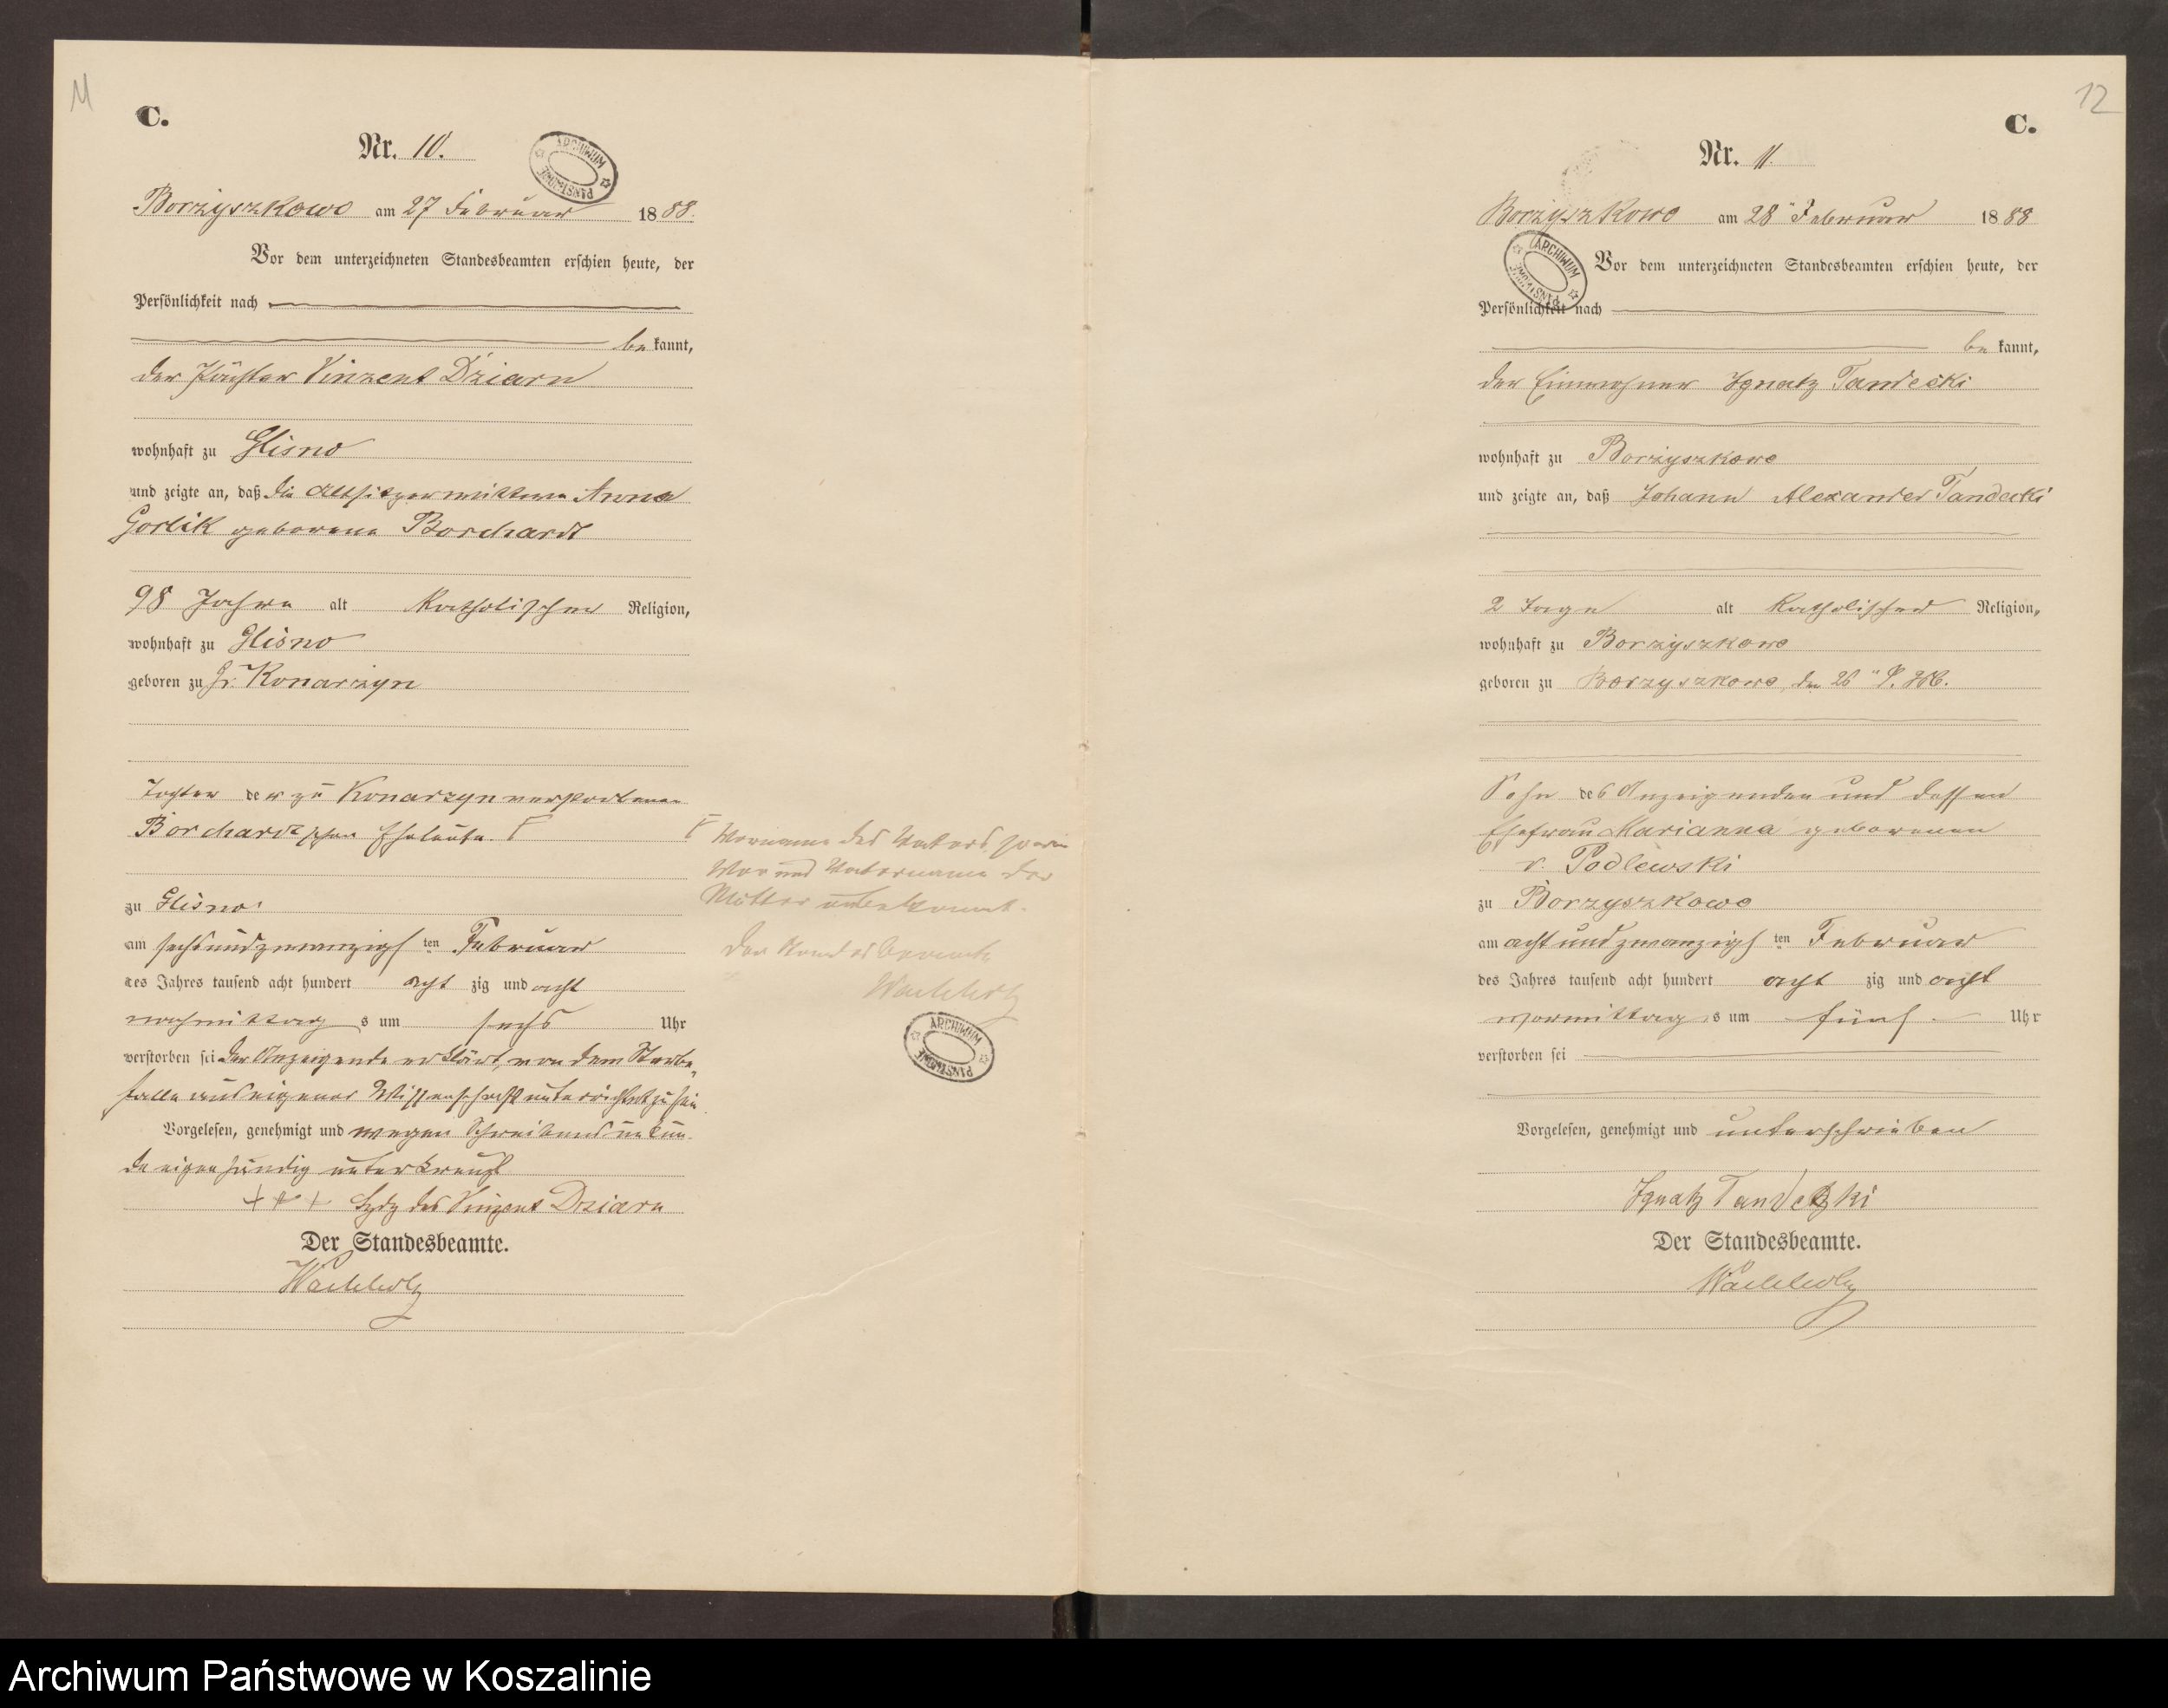 11
C.
Nr. 10.
ARCHIWUM PAŃSTWOWE
Borzyszkowo am 27 Februar 1888.
Vor dem unterzeichneten Standesbeamten erschien heute, der
Persönlichkeit nach
be kannt,
der Pächter Vinzent Dziarn
wohnhaft zu Glisno
und zeigte an, daß die Altsitzerwittwe Anna
Gorlik geborene Borchardt
98 Jahre alt katholischer Religion,
wohnhaft zu Glisno
geboren zu Gr. Konarzyn
Tochter der zu Konarzyn verstorbenen
Borchardtschen Eheleute. Γ
zu Glisno
am sechsundzwanzigsten Februar
des Jahres tausend acht hundert acht zig und acht
nachmittags um sechs Uhr
verstorben sei der Anzeigende erklärt, von dem Sterbe-
falle aus eigener Wissenschaft unterrichtet zu sein.
Vorgelesen, genehmigt und wegen Schreibens unkun-
de eigenhändig unterkreuzt
+ + + Hdz des Vinzent Dziarn
Der Standesbeamte.
Wachholz
Γ Vorname des Vaters, sowie
Vor und Vatername der
Mutter unbekannt.
Der Standesbeamte
Wachholz
ARCHIWUM PAŃSTWOWE
12
C.
Nr. 11.
Borzyszkowo am 28ᵗ Februar 1888
ARCHIWUM PAŃSTWOWE
Vor dem unterzeichneten Standesbeamten erschien heute, der
Persönlichkeit nach
be kannt,
der Einwohner Ignatz Tandecki
wohnhaft zu Borzyszkowo
und zeigte an, daß Johann Alexander Tandecki
2 Tage alt katholischer Religion,
wohnhaft zu Borzyszkowo
geboren zu Borzyszkowo, den 26
Sohn des Anzeigenden und dessen
Ehefrau Marianna geborenen
v. Podlewski
zu Borzyszkowo
am achtundzwanzigsten Februar
des Jahres tausend acht hundert acht zig und acht
vormittags um fünf Uhr
verstorben sei
Vorgelesen, genehmigt und unterschrieben
Ignatz Tandetzki
Der Standesbeamte.
Wachholz
Archiwum Państwowe w Koszalinie